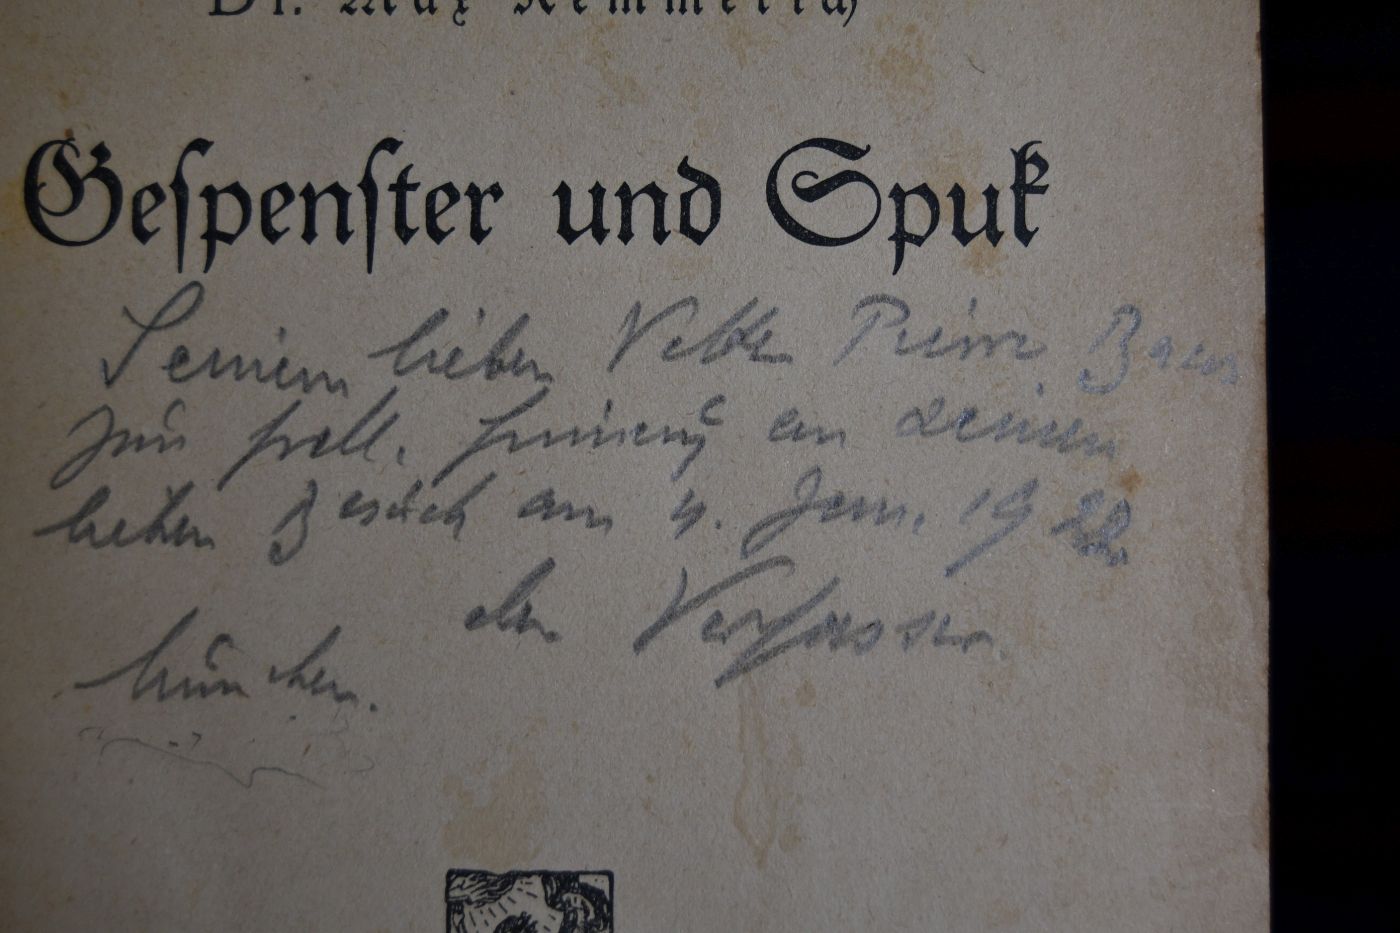 Dr. Max Kemmerich
Gespenster und Spuk
Seinem lieben Vetter
zur frdl. Erinnerung an deinen
lieben Besuch am 4. Jan. 1922
der Verfasser
München.